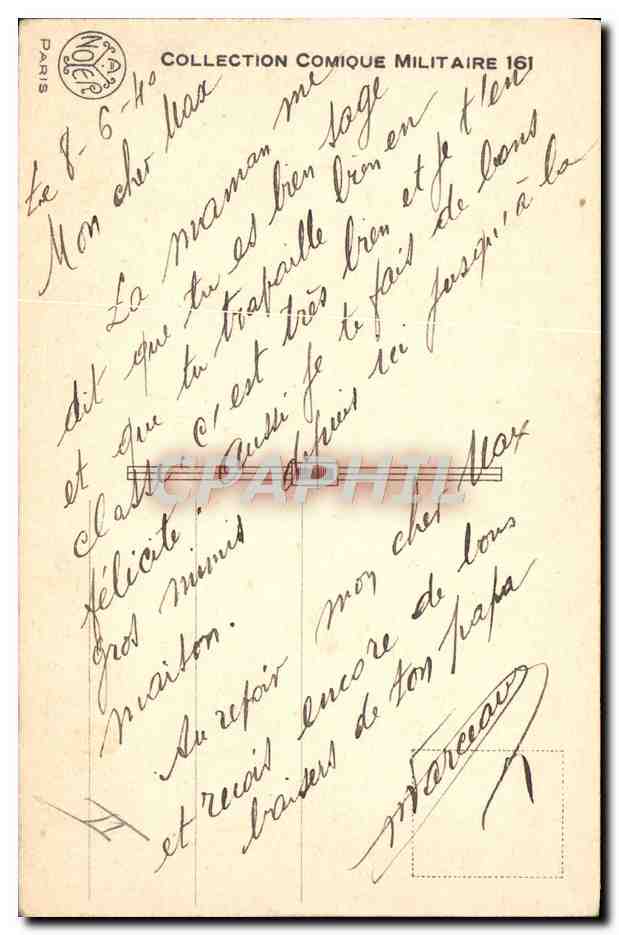 COLLECTION COMIQUE MILITAIRE 161
A. NOYER
PARIS
Le 8-6-40
Mon cher Max
La maman me
dit que tu es bien sage
et que tu travaille bien en
classe c'est très bien et je t'en
félicite. aussi je te fais de bons
gros mimis depuis ici jusqu'à la
maison.
Au revoir mon cher Max
et recois encore de bons
baisers de ton papa
Marceau
CPAPHIL